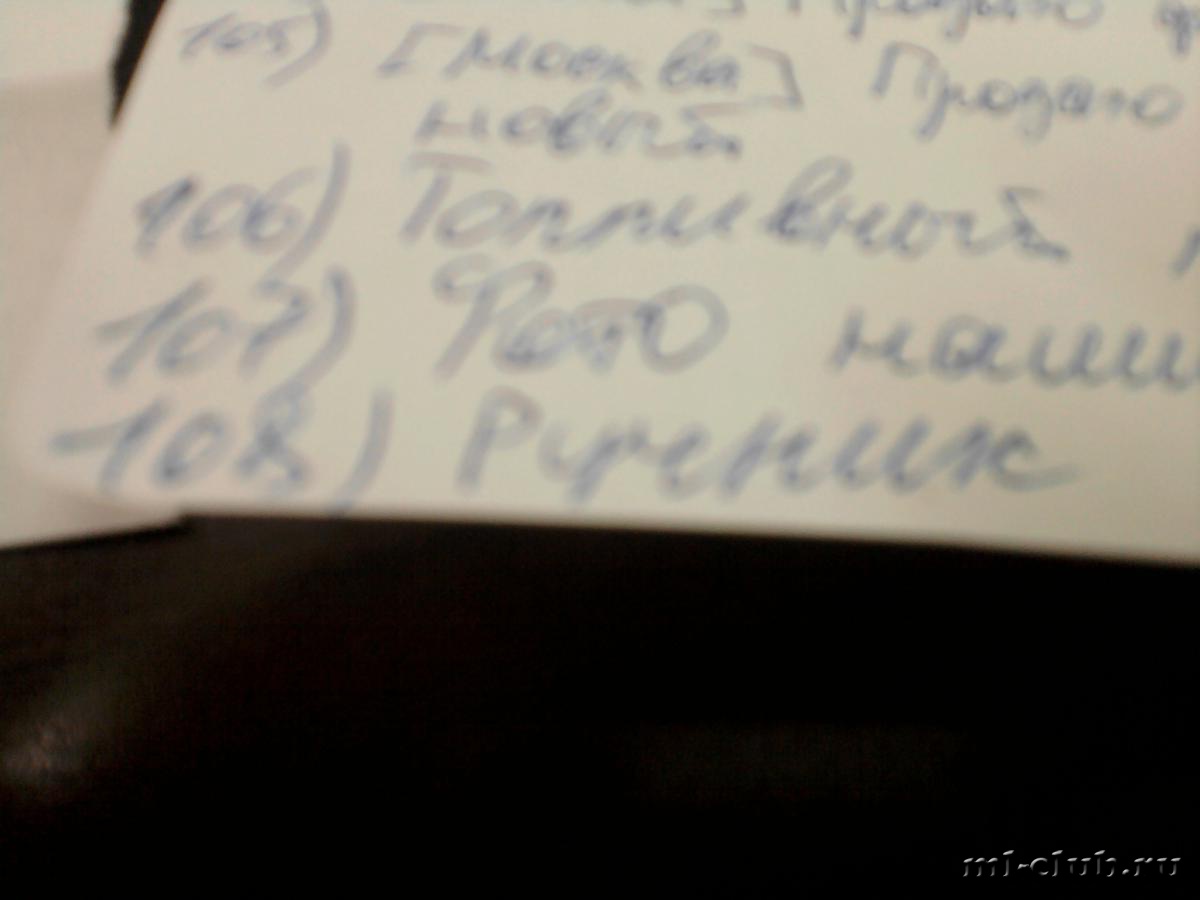 Продаю
105) [Москва] Продаю
новый
106) Топливной
107) Фото наши
108) Ручник
ml-club.ru